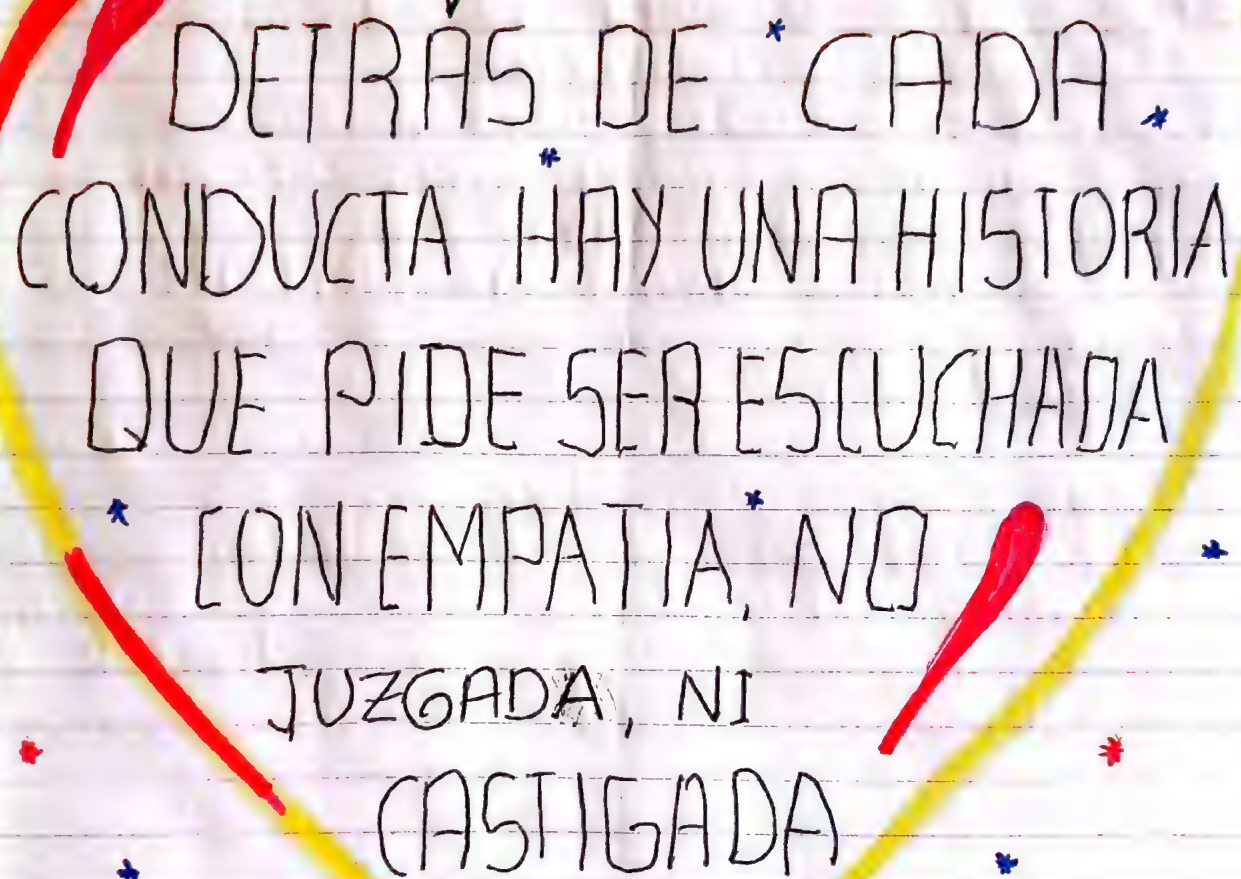 DETRÁS DE CADA
CONDUCTA HAY UNA HISTORIA
QUE PIDE SER ESCUCHADA
CON EMPATIA, NO
JUZGADA, NI
CASTIGADA